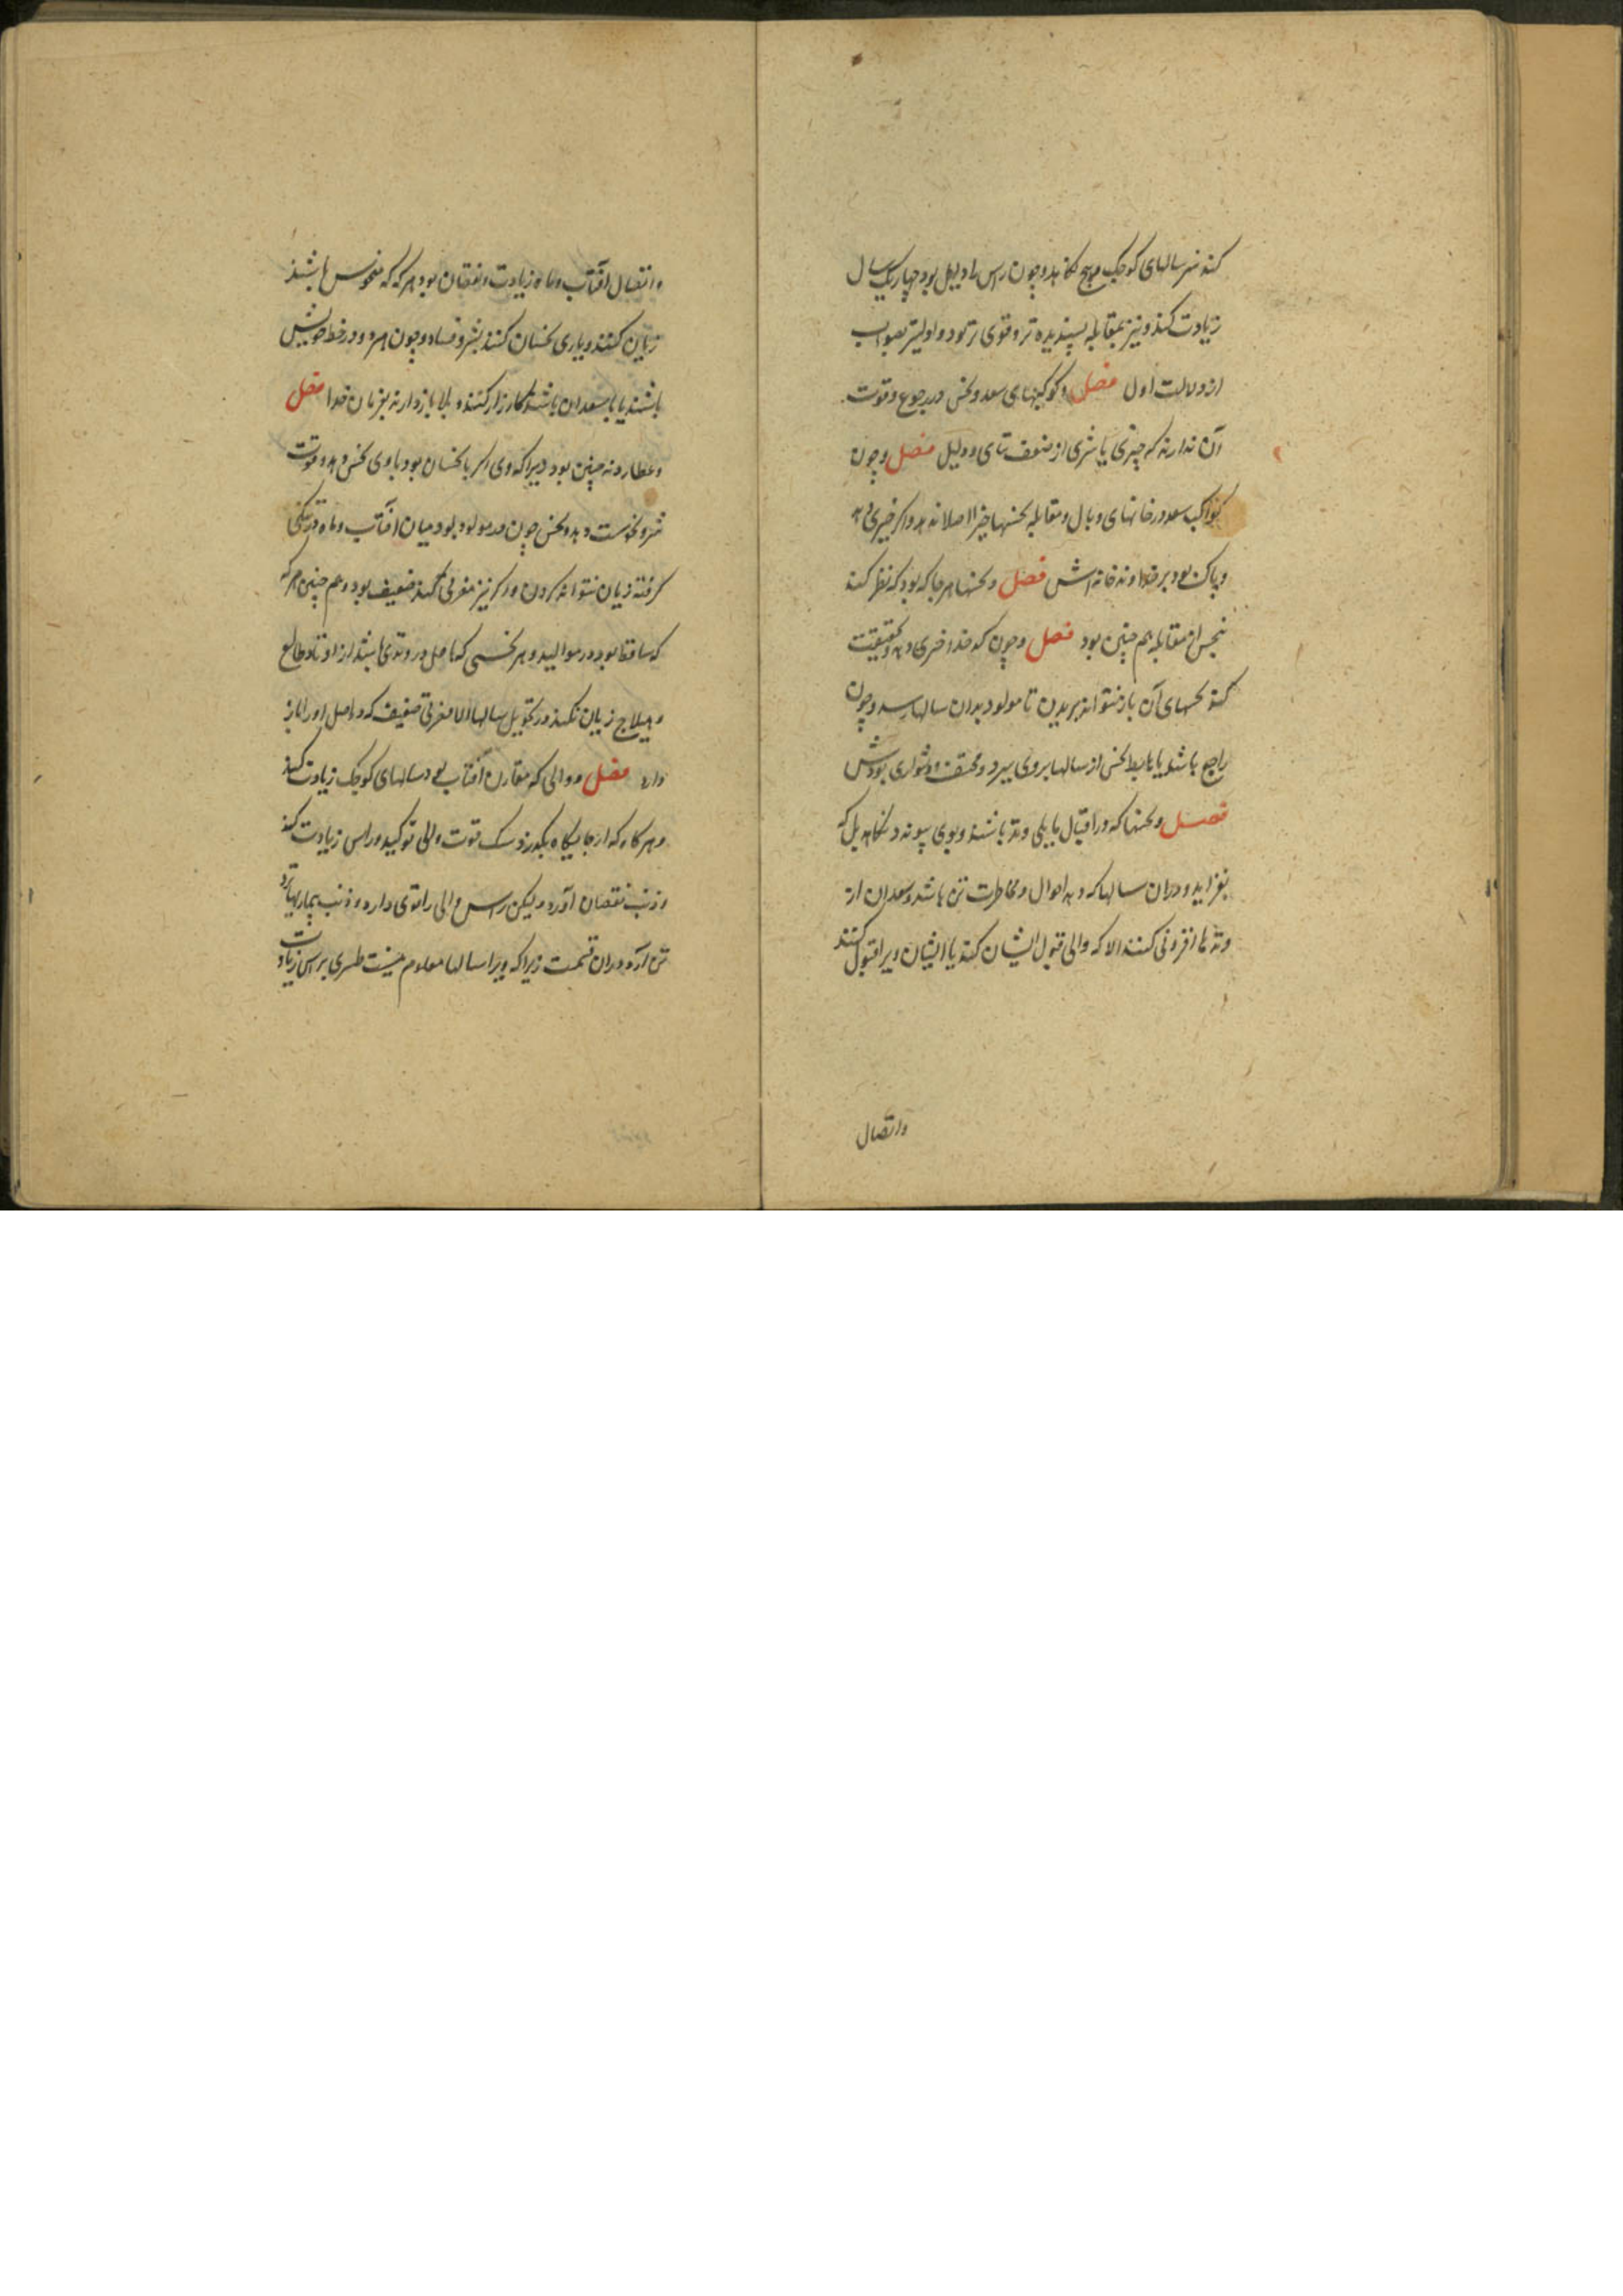 کند نیز سالهای کوچک و هیچ نکاهد و چون راس را دلیل بود چهار یک سال
زیادت کند و نیز بمقابله پسندیده تر و قوی تر بود و اولیتر بصواب
از دلالت اول فصل و کوکبهای سعد و نحس در رجوع و قوت
آن ندارند که چیزی یا شری از ضعف تنای و دلیل فصل و چون
کواکب سعد در خانهای وبال و مقابله نحسها خیر اصلا ندهد و اگر خیری دهد
و پاک بود بر خداوند خانه اش فصل و نحسها هر جا که بود که نظر کند
نحس از مقابله هم چنین بود فصل و چون کدخدا خبری دهد و بحقیقت
کند نحسهای آن باز نتواند بریدن تا مولود بدان سالها رسد و چون
راجع باشد یا هابط نحس از سالها بروی ببرد و محنت و دشواری بودش
فصل و نحسها که در اقبال یا یلی وتد باشند و بوی پیوندد نکاهد بل که
بفزاید و دران سالها که دهد احوال و مخاطرت تن باشد و سعدان از
وتدها افزونی کنند الا که والی قبول ایشان کند یا ایشان ویرا قبول کنند
واتصال
و اتصال آفتاب و ماه زیادت و نقصان بود هر که که منحوس باشند
زیان کنند و یاری نحسان کنند بشر و فساد و چون هر دو در خط خویش
باشند یا با سعدان باشند کارزار کنند و بلا باز دارند بفرمان خدا فصل
و عطارد نه چنین بود زیرا که وی اگر با نحسان بود با وی نحس دهد و قوت
شر و نحوست دهد و نحس چون در مولود بود میان آفتاب و ماه
گرفته زیان نتواند کردن و اگر نیز مغربی ضعیف بود و هم چنین هر که
که ساقط بود در موالید و هر نحسی که باصل در وتدی باشد از اوتاد طالع
و هیلاج زیان نکند در تحویل سالها الا مغربی ضعیف که در اصل او را باز
دارد فصل و والی که مقارن آفتاب بود سالهای کوچک زیادت کند
و هر گاه که از جایگاه بگذرد قوت والی توکید و راس زیادت کند
و ذنب نقصان آورد ولیکن راس والی را قوی دارد و ذنب بیماریها برد
تن آرد و دران قسمت زیرا که ویرا سالها معلوم نیست طبری براس زیادت